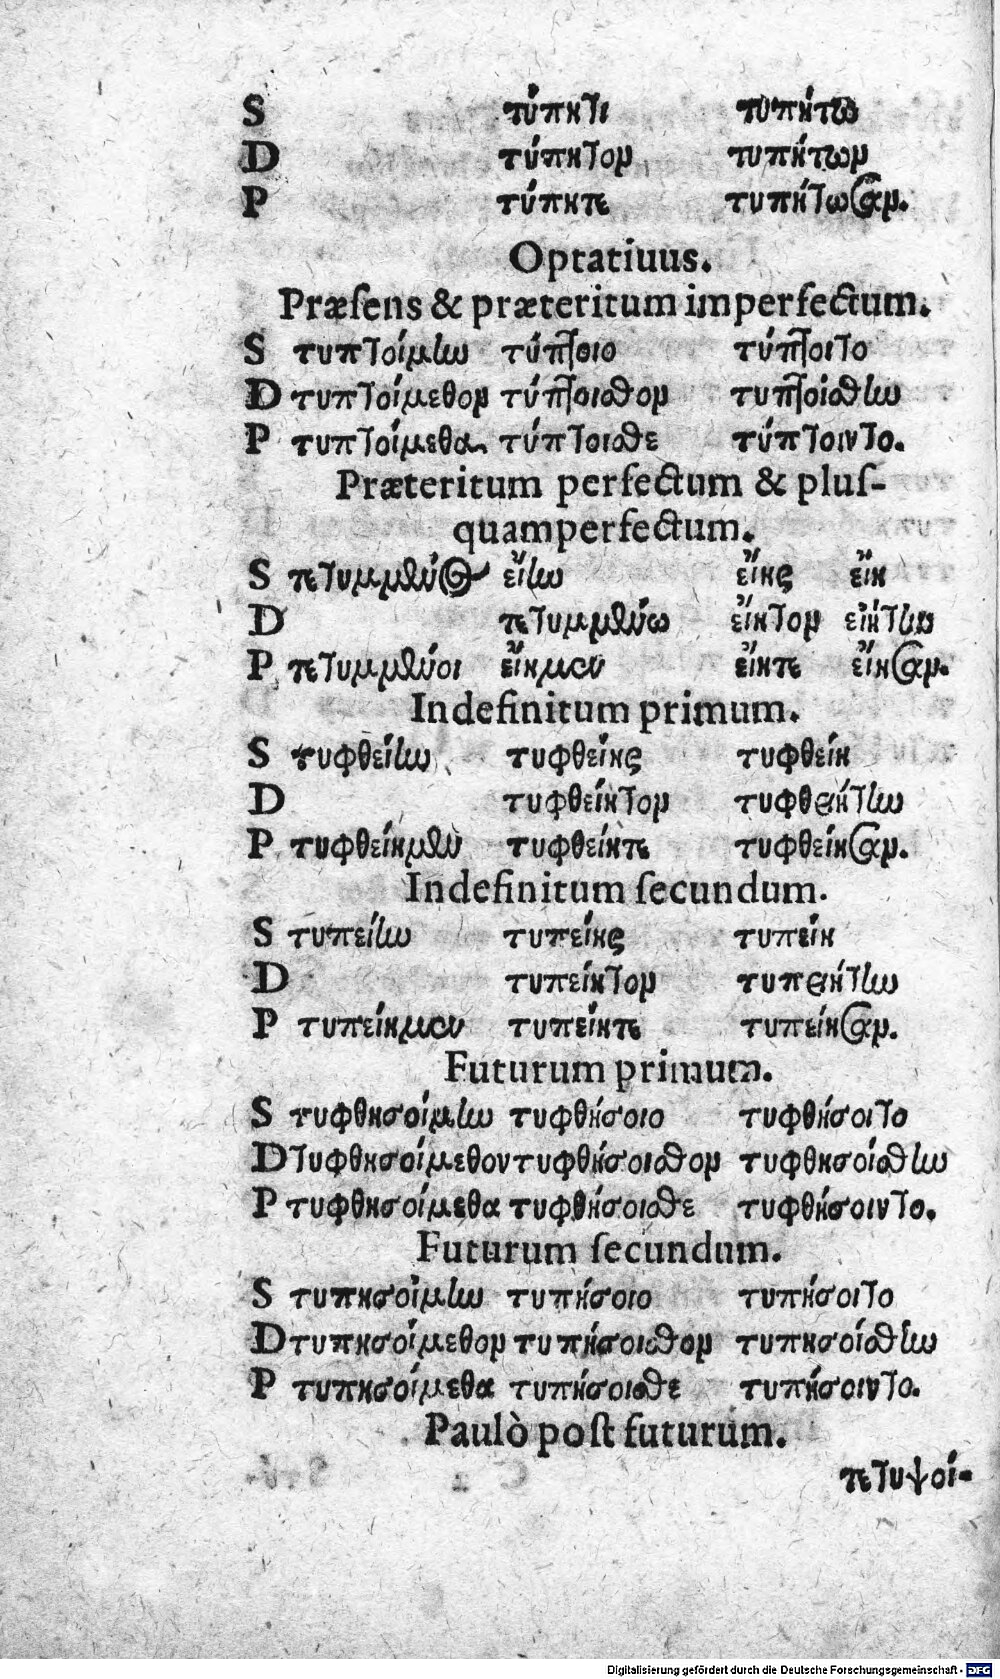 S τύπητι τυπήτω
D τύπητον τυπήτων
P τύπητε τυπήτωσαν.
Optatiuus.
Præſens & præteritum imperfectum.
S τυπτοίμην τύπτοιο τύπτοιτο
D τυπτοίμεθον τύπτοισθον τυπτοίσθην
P τυπτοίμεθα τύπτοισθε τύπτοιντο.
Præteritum perfectum & pluſ-
quamperfectum.
S τετυμμένος εἴην εἴης εἴη
D τετυμμένω εἴητον εἰήτην
P τετυμμένοι εἴημεν εἴητε εἴησαν.
Indefinitum primum.
S τυφθείην τυφθείης τυφθείη
D τυφθείητον τυφθειήτην
P τυφθείημεν τυφθείητε τυφθείησαν.
Indefinitum ſecundum.
S τυπείην τυπείης τυπείη
D τυπείητον τυπειήτην
P τυπείημεν τυπείητε τυπείησαν.
Futurum primum.
S τυφθησοίμην τυφθήσοιο τυφθήσοιτο
D τυφθησοίμεθον τυφθήσοισθον τυφθησοίσθην
P τυφθησοίμεθα τυφθήσοισθε τυφθήσοιντο.
Futurum ſecundum.
S τυπησοίμην τυπήσοιο τυπήσοιτο
D τυπησοίμεθον τυπήσοισθον τυπησοίσθην
P τυπησοίμεθα τυπήσοισθε τυπήσοιντο.
Paulò poſt futurum.
τετυψοί-
Digitalisierung gefördert durch die Deutsche Forschungsgemeinschaft - DFG